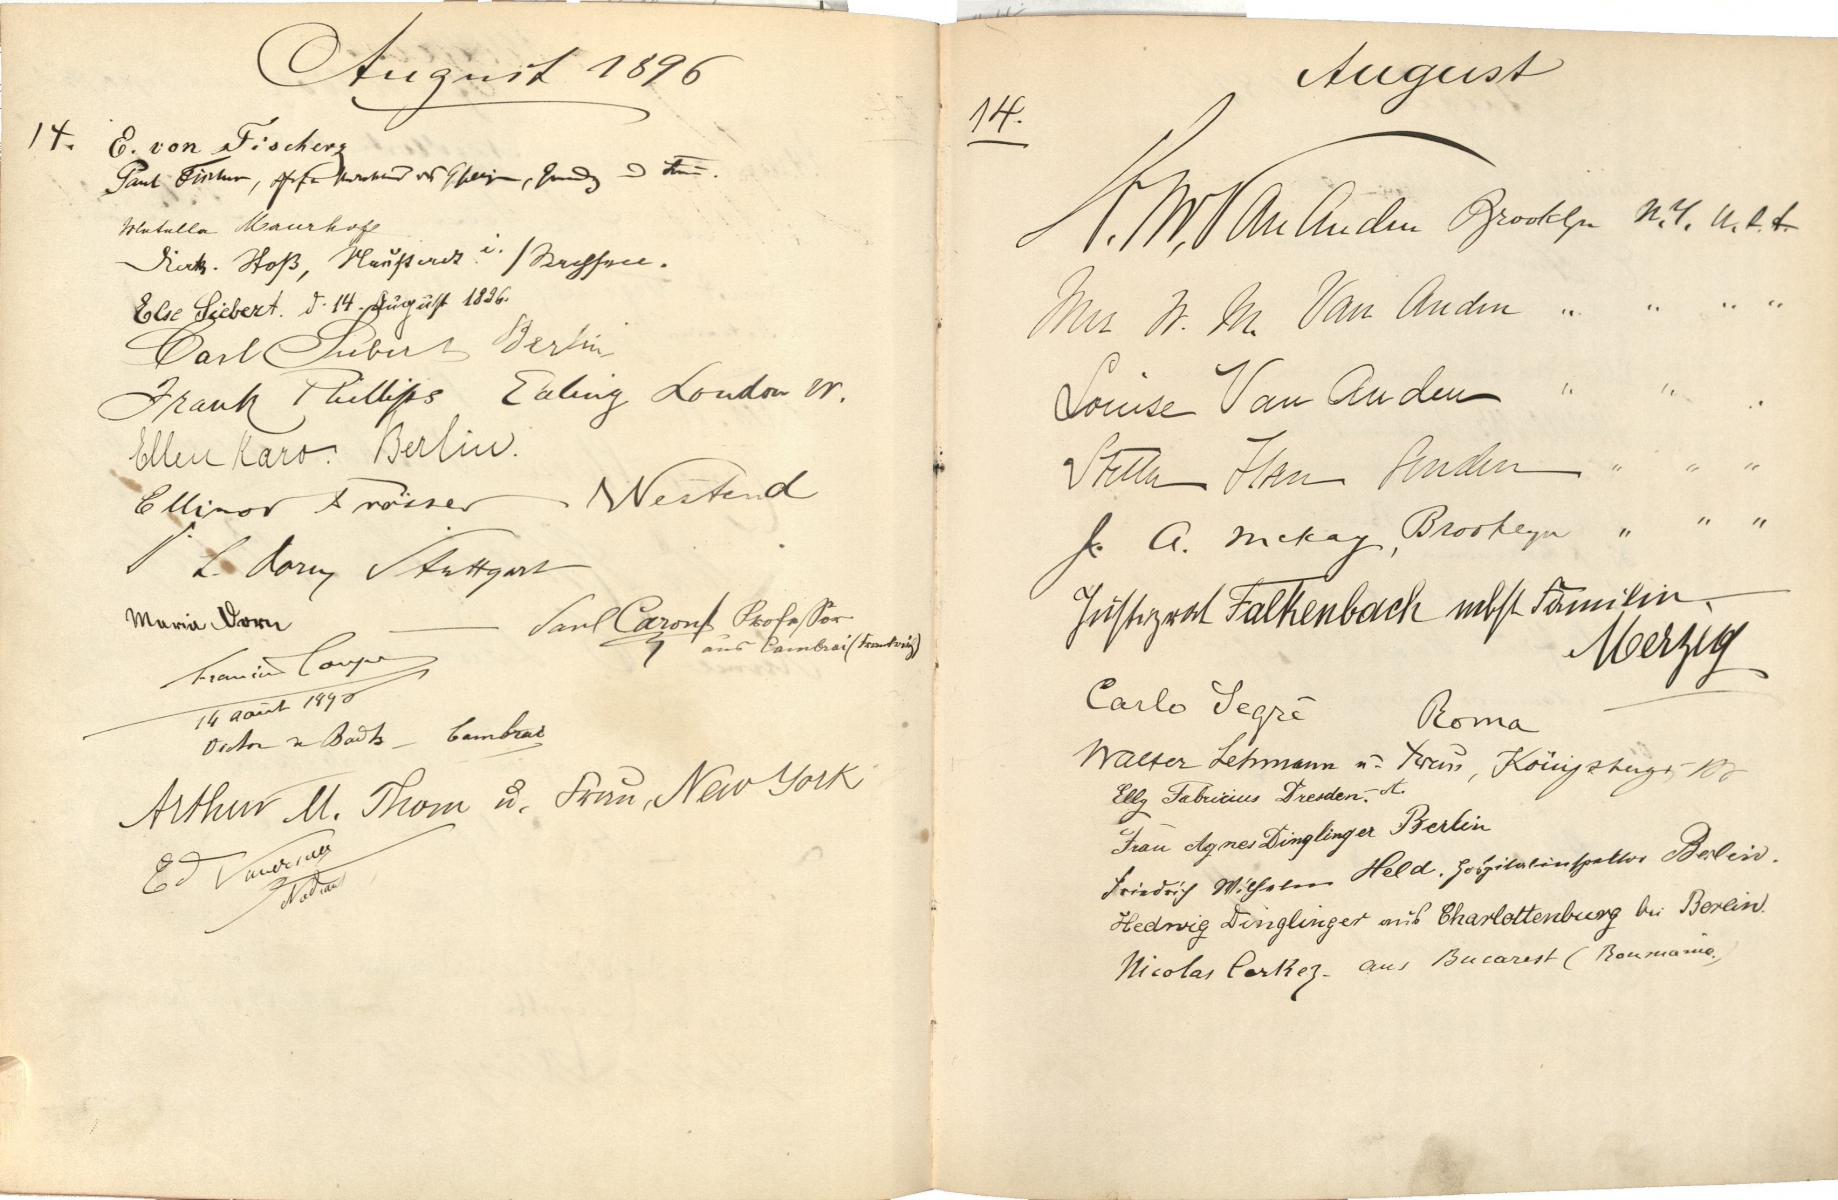 August 1896
14. E. von Fischerz
Paul Fischer,
Maurhofe
Hoß,
Else Siebert. d. 14. August 1896.
Carl Siebert Berlin
Frank Phillips Ealing London W.
Ellen Karo. Berlin.
Ellinor Westend
L. Dorn Stuttgart
Maria Dorn
Paul Caront Professor
aus Cambrai (Frankreich)
14 août 1896
Cambrai
Arthur M. Thom u. Frau, New York
Ed
August
14.
W. M. Van Anden Brooklyn N.Y. U.S.A.
Mrs W. M. Van Anden " " " "
Louise Van Anden " " .
Stella Van Anden " " "
J. A. McKay, Brooklyn " " "
Justizrat Falkenbach nebst Familie
Merzig
Carlo Segrè Roma
Walter Lehmann u. Frau, Königsberg
Elly Fabricius Dresden-A.
Frau Agnes Dinglinger Berlin
Friedrich Wilhelm Held. Hospitalinspektor Berlin.
Hedwig Dinglinger aus Charlottenburg bei Berlin.
Nicolas Cerkez. aus Bucarest (Roumanie.)